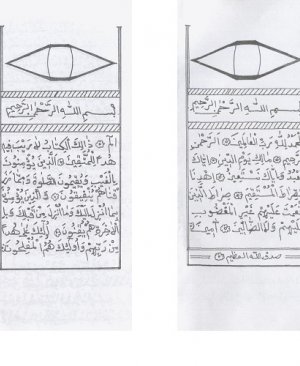 بسم الله الرحمن الرحيم
الحمد لله رب العالمين الرحمن
الرحيم مالك يوم الدين إياك
نعبد وإياك نستعين اهدنا
الصراط المستقيم صراط الذين
أنعمت عليهم غير المغضوب
عليهم ولا الضالين آمين
صدق الله العظيم
بسم الله الرحمن الرحيم
الم ذالك الكتاب لا ريب فيه
هدى للمتقين الذين يؤمنون
بالغيب ويقيمون الصلوة ومما رز
قناهم ينفقون والذين يؤمنو
بما أنزل إليك وما أنزل من قبلك وبا
لآخرة هم يوقنون أولئك على هد
من ربهم وأولئك هم المفلحون